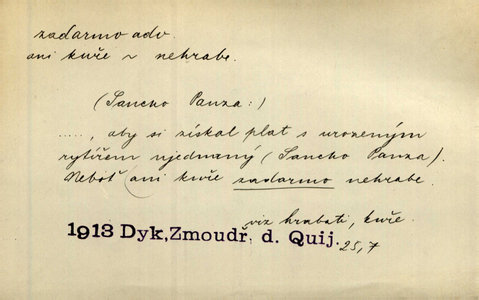 zadarmo adv.
ani kuře ~ nehrabe.
(Sancho Panza:)
....., aby si získal plat s urozeným
rytířem ujednaný (Sancho Panza).
Neboť (ani kuře zadarmo nehrabe.
viz hrabati, kuře.
1913 Dyk, Zmoudř. d. Quij. 25,7